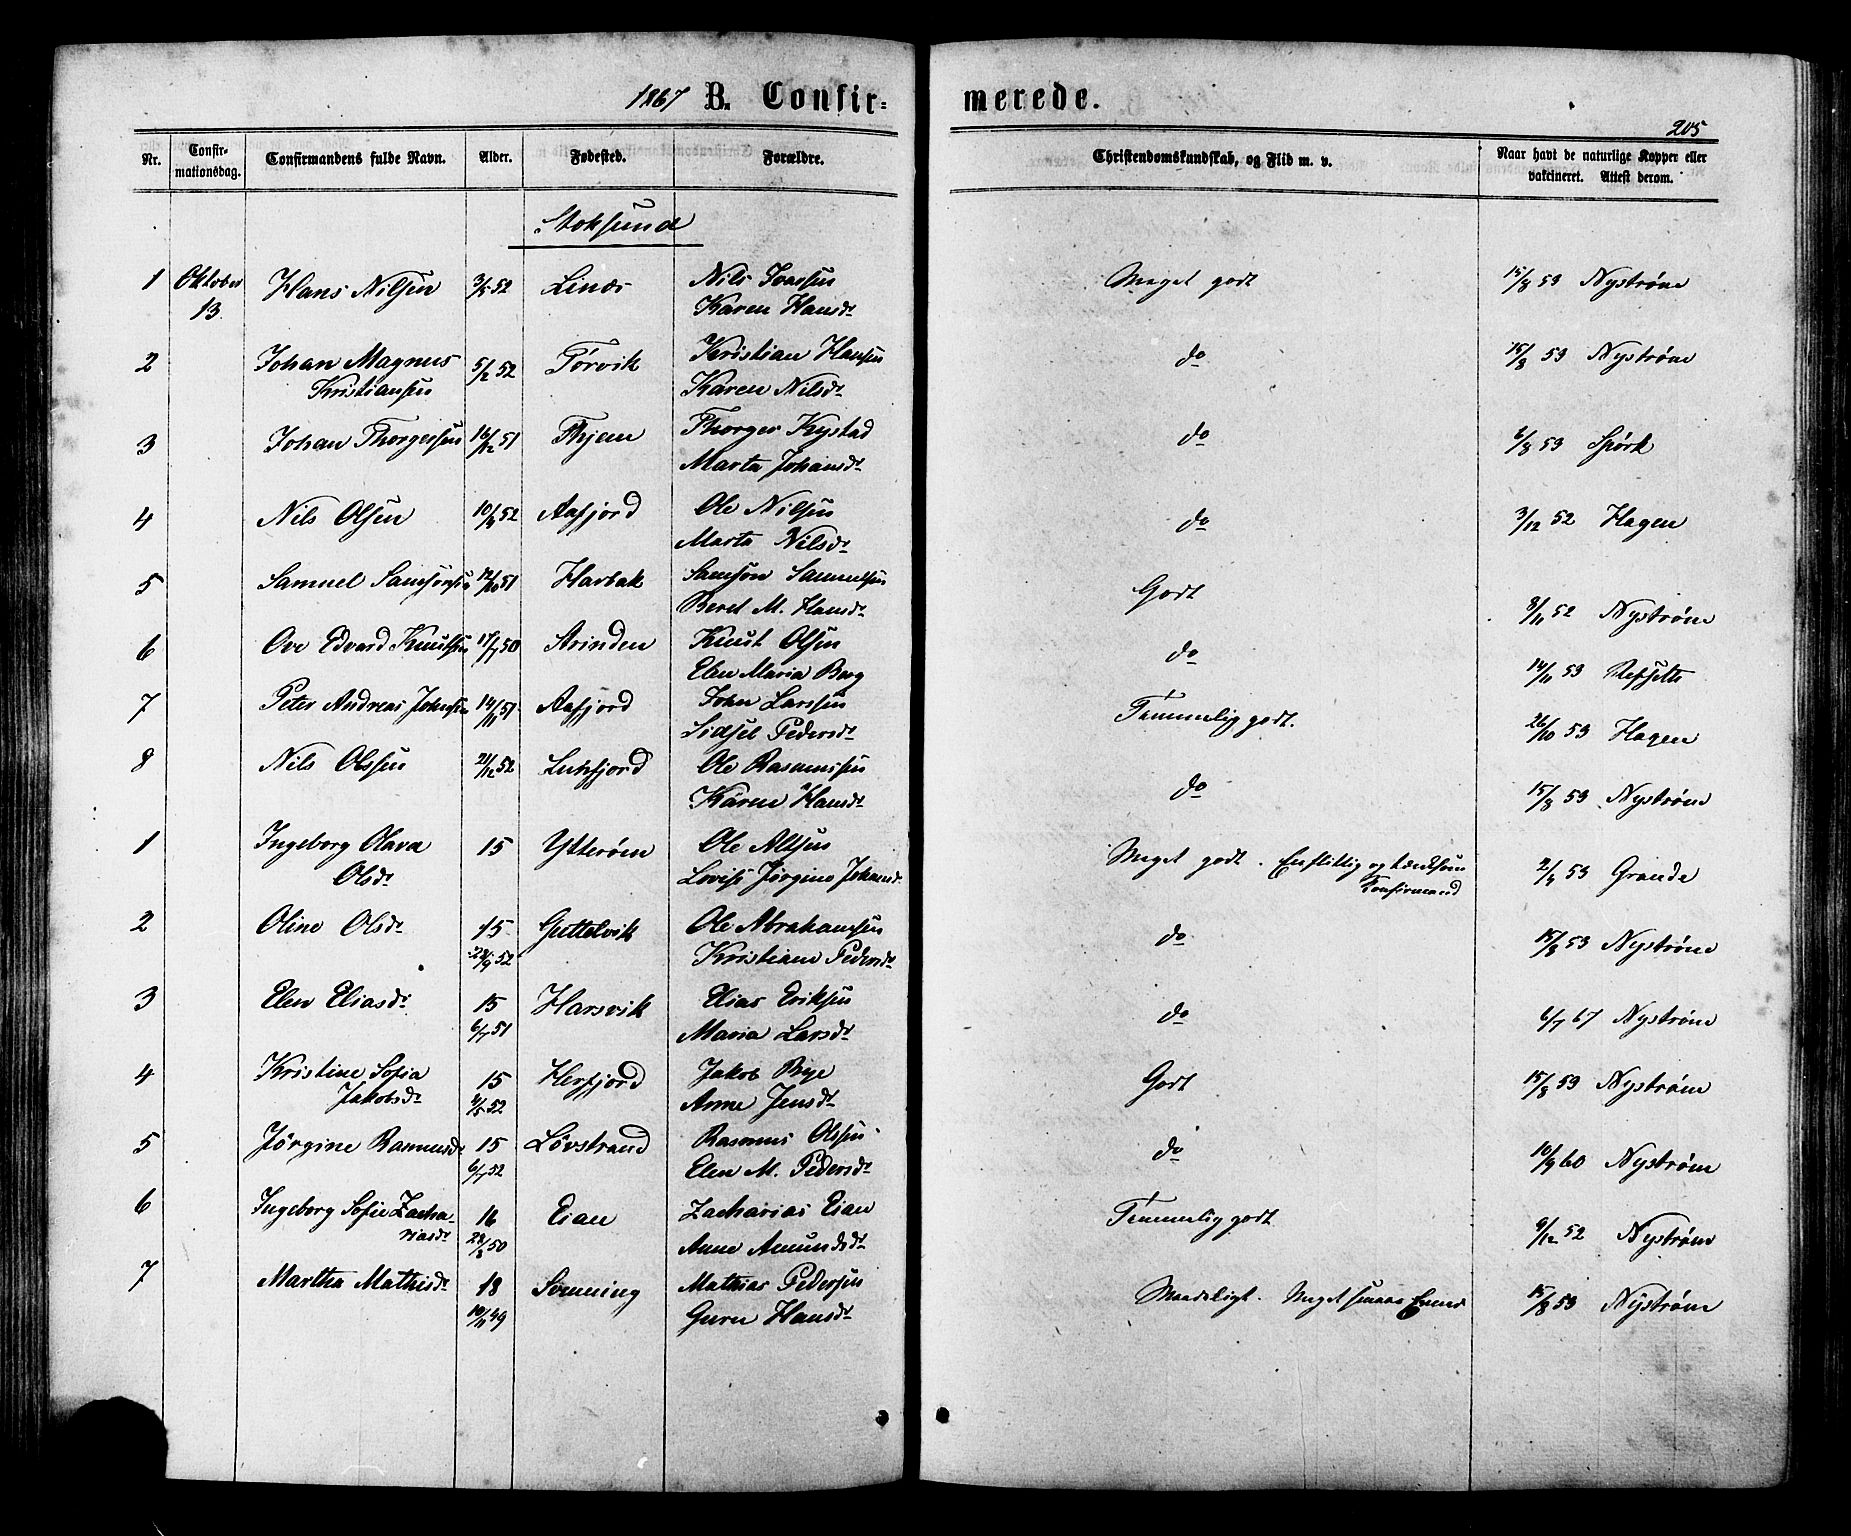 1867 B. Confir- merede.
205
Nr. Confir-mationsdag. Confirmandens fulde Navn. Alder. Fødested. Forældre. Christendomskundskab, og Flid m. v. Naar havt de naturlige Kopper eller vakcineret. Attest derom.
Stoksund
1 Oktober Hans Nilsen 3/5 52 Linæs Nils Ivarsen Meget godt 15/8 53 Nystrøm
13 Karen Hansdr
2 Johan Magnus 5/2 52 Tørvik Kristian Hansen do 15/8 53 Nystrøm
Kristiansen Karen Nilsdr
3 Johan Thorgersen 16/12 51 Thorger Kystad do 6/8 53 Spørk
Marta Johansdr
4 Nils Olsen 10/8 52 Aafjord Ole Nilsen do 3/12 52 Hagen
Marta Nilsdr
5 Samuel Samsonsen 12/10 51 Harbak Samson Samuelsen Godt 8/11 52 Nystrøm
Beret M. Hansdr
6 Ove Edvard Knutsen 17/7 50 Strinden Knut Olsen do 14/11 53 Refseth
Elen Maria Berg
7 Peter Andreas Johnsen 14/11 51 Aafjord John Larsen Temmelig godt. 26/10 53 Hagen
Sidsel Pedersdr
8 Nils Olssen 21/12 52 Ole Rasmussen do 15/8 53 Nystrøm
Karen Hansdr
1 Ingeborg Olava 15 Ytterøen Ole Altsen Meget godt. En flittig og tænksom 2/8 53 Grande
Olsdr Lovise Jørgine Johansdr Konfirmand
2 Oline Olsdr 15 Guttelvik Ole Abrahamsen do 15/8 53 Nystrøm
28/9 52 Kristiane Pedersdr
3 Elen Eliasdr 15 Harsvik Elias Eriksen do 6/7 67 Nystrøm
6/7 51 Maria Larsdr
4 Kristine Sofia 15 Herfjord Jakob Bye Godt 15/8 53 Nystrøm
Jakobsdr 4/5 52 Anne Jensdr
5 Jørgine Rasmusdr 15 Løvstrand Rasmus Olssen do 10/9 60 Nystrøm
6/7 52 Elen M. Pedersdr
6 Ingeborg Sofie Zacha- 16 Eian Zacharias Eian Temmelig godt 9/12 52 Nystrøm
riasdr 28/8 50 Anne Amundsdr
7 Martha Mathisdr 18 Sørnning Mathias Pedersen Maadeligt. Meget smaae Evner 15/8 53 Nystrøm
10/11 49 Guru Hansdr